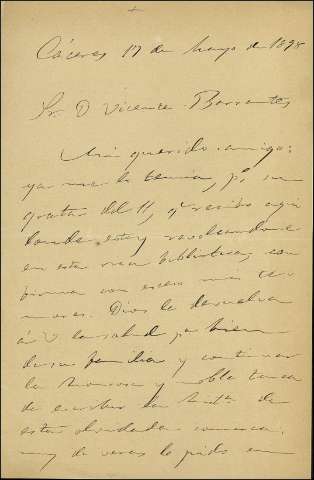 Cáceres 17 de Mayo de 1898
Sr. D Vicente Barrantes
Mi querido amigo:
ya me lo temia, pr su
grata del 11, qe recibo aqui
donde estoy
en esta rica biblioteca,
con mis te-
mores. Dios le devuelva
á V la salud pa bien
de su familia y continuar
la honrosa y noble tarea
de escribir la histª de
esta olvidada comarca.
muy de veras lo pido en